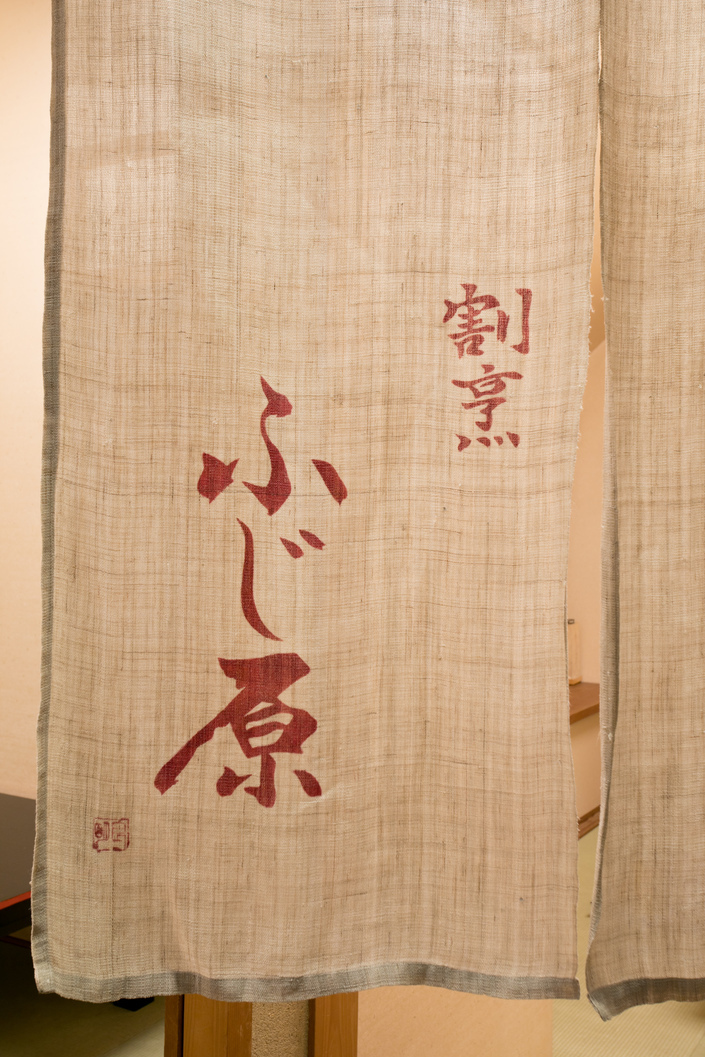 割烹
ふじ原